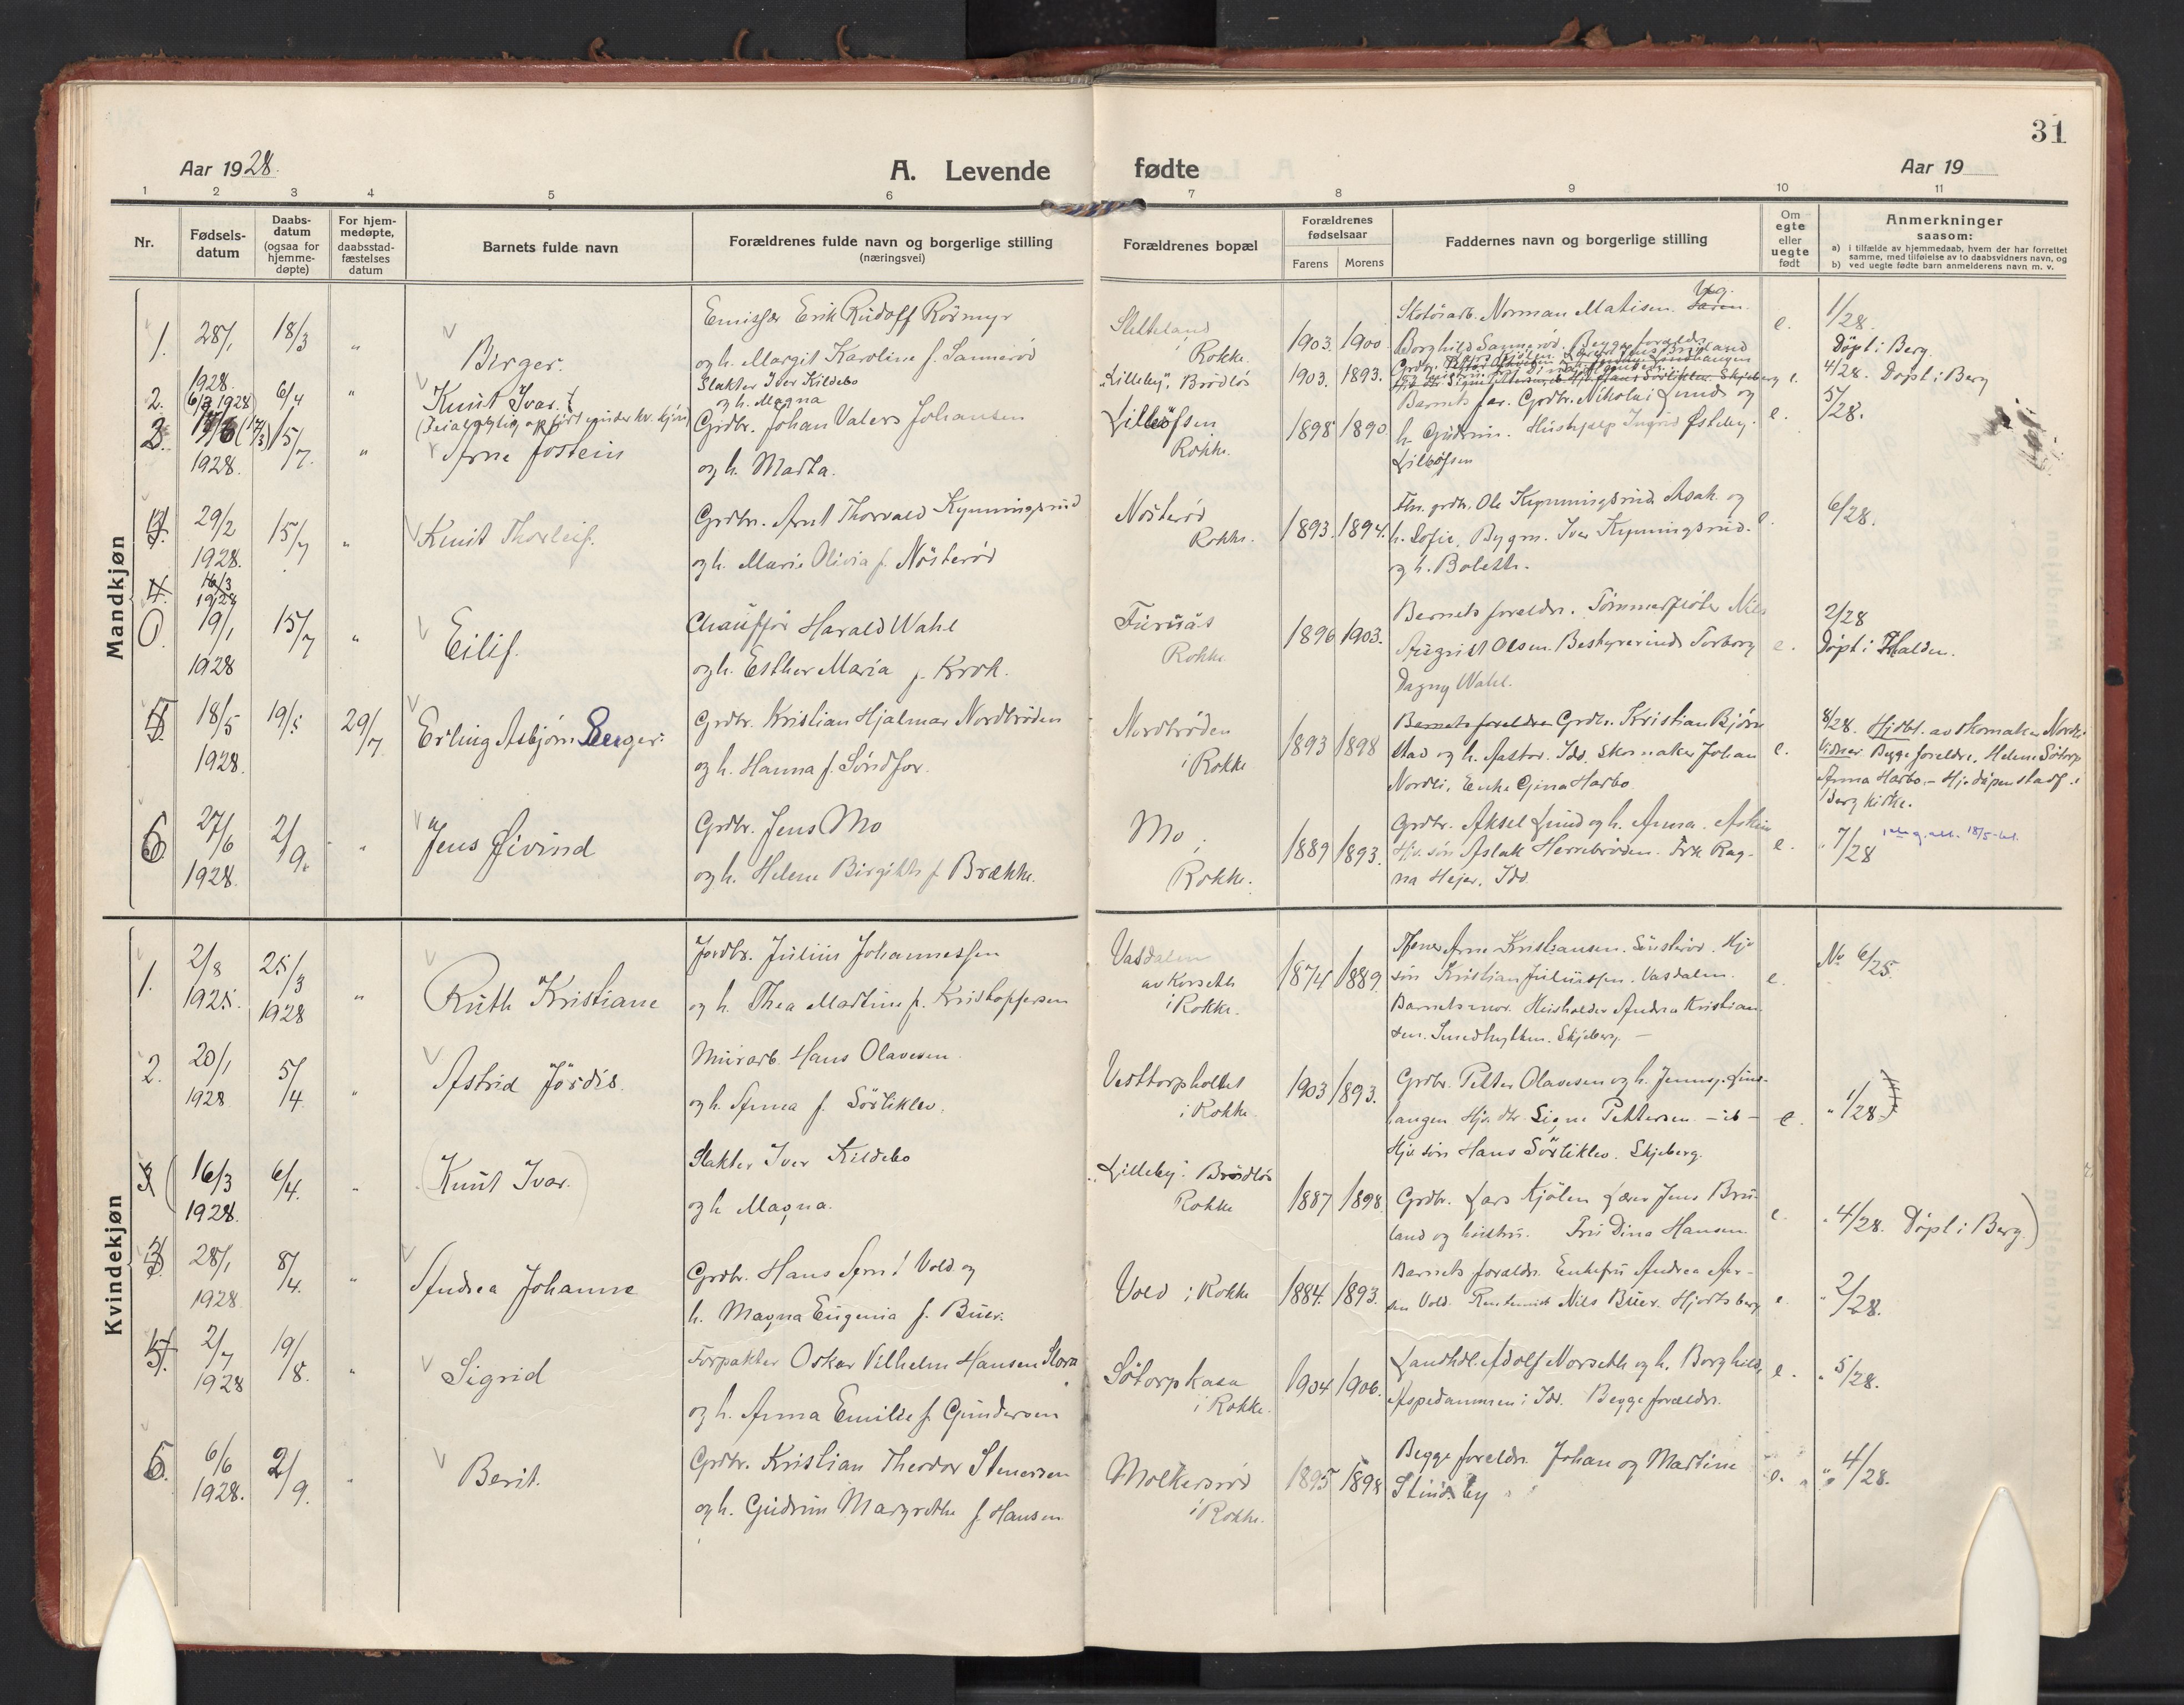 31
Aar 1928.
A. Levende fødte
Aar 19
1 2 3 4 5 6 7 8 9 10 11
Nr.
Fødsels-
datum
Daabs-
datum
(ogsaa for
hjemme-
døpte)
For hjem-
medøpte,
daabsstad-
fæstelses
datum
Barnets fulde navn
Forældrenes fulde navn og borgerlige stilling
(næringsvei)
Forældrenes bopæl
Forældrenes
fødselsaar
Farens Morens
Faddernes navn og borgerlige stilling
Om
egte
eller
uegte
født
Anmerkninger
saasom:
a) i tilfælde av hjemmedaab, hvem der har forrettet
samme, med tilføielse av to daabsvidners navn, og
b) ved uegte fødte barn anmelderens navn m. v.
Mandkjøn
1. 28/1 1928. 18/3 " Birger.
Emissær Erik Rudolf Rörmyr
og h. Margit Karoline f. Sannerød
Rokke. 1903. 1900
Skotöiarb. Norman Matisen.
Borghild Sannerød. Begge foreldre
e. 1/28.
Døpt i Berg.
2. 6/4 " Knut Ivar.
Slakter Iver Kildebo
og h. Magna
"Lilleby", Brödlös 1903. 1893.
e. 4/28. Døpt i Berg
1928. 15/7. " Arne Jostein
Grdbr. Johan Valers Johansen
og h. Marta.
Rokke. 1898 1890
Barnets far. Grdbr. Nikolai Lunde og
h. Gudrun. Hushjelp Ingrid Østeby.
e. 5/28.
29/2 1928. 15/7 " Knut Thorleif.
Grdbr. Arnt Thorvald Kynningsrud
og h. Marie Olivia f. Nösteröd
Nösterød
Rokke. 1893. 1894.
grdbr. Ole Kynningsrud. Asak. og
h. Sofie. Bygm. Iver Kynningsrud.
og h. Boleth.
6/28.
16/3
1928
0. 19/1 1928 15/7 " Eilif.
Chauffør Harald Wahl
og h. Esther Maria f. Krok.
Furuås
Rokke 1896 1903.
Barnets foreldre. Tømmerfløter Nils
August Olsen. Bestyrerinde Torborg
Dagny Wahl.
e. 2/28
Døpt i Halden.
18/5 1928. 19/5 29/7 Erling Asbjørn
Grdbr. Kristian Hjalmar Nordbröden
og h. Hanna f. Söndfor.
Nordbröden
i Rokke 1893 1898
Barnets foreldre Grdbr. Kristian Bjørn
stad og h. Astor. Idd. Skomaker Johan
Nordli, Enke Gina Harbo.
e. 8/28. Hjdbt. av skomaker Nordli
Vidner Begge foreldre, Helene Sötorp
Anna Harbo. - Hj. dåpen stadf. i
Berg kirke.
6 27/6 1928. 2/9. " Jens Øivind
Grdbr. Jens Mo
og h. Helene Birgitte f. Brække.
Mo i
Rokke. 1889 1893.
Grdbr. Aksel Lund og h. Anna.
Hjv. søn Aslak Herrebröden. Frk Rag-
na Hejer. Idd.
e. " 7/28
Kvindekjøn
1. 2/8 1925. 25/3 1928 " Ruth Kristiane
Jordbr. Julius Johannessen
og h. Thea Martine f. Kristoffersen
Vasdalen
av Korseth
i Rokke. 1874 1889.
Tjener Arne Kristiansen.
søn Kristian Juliussen. Vasdalen.
Barnets mor. Husholder Andrea Kristian-
sen. Smedhytten. Skjeberg. -
e. Nr 6/25.
2. 20/1 1928 5/4 " Astrid Jördis.
Murarb. Hans Olavesen.
og h. Anna f. Sörliklev.
Vesttorpholtet
i Rokke 1903 1893.
Grdbr. Petter Olavesen og h. Jenny. Lund-
haugen Hjv. dtr. Signe Pettersen - ib -
Hjv. søn Hans Sörliklev. Skjeberg.
e. " 1/28.
3 16/3 1928. 6/4. " (Knut Ivar.)
Slakter Iver Kildebo
og h Magna.
"Lilleby". Brödlös
Rokke 1887 1898.
Grdbr. Lars Kjölen Lærer Jens Bru-
land og hustru. Fru Dina Hansen
e. " 4/28. Døpt i Berg.)
28/1 1928 8/4. " Andrea Johanne
Grdbr. Hans Arnt Vold og
h. Magna Eugenia f. Buer.
Vold i Rokke 1884. 1893.
Barnets foreldre. Enkefru Andrea
Vold. Nils Buer. Hjortsberg
e. " 2/28.
2/7 1928 19/8. " Sigrid
Forpakter Oskar Vilhelm Hansen
og h. Anna Emilie f. Gundersen
Sötorpkasa
i Rokke. 1904 1906.
Landhdl. Adolf Norseth og h. Borghild,
Aspedammen i Idd. Begge foreldre.
e. " 5/28.
6/6 1928. 2/9. " Berit.
Grdbr. Kristian Theodor Stenersen
og h. Gudrun Margrethe f. Hansen
i Rokke. 1895 1898
Begge foreldre. Johan og Martine
" 4/28.